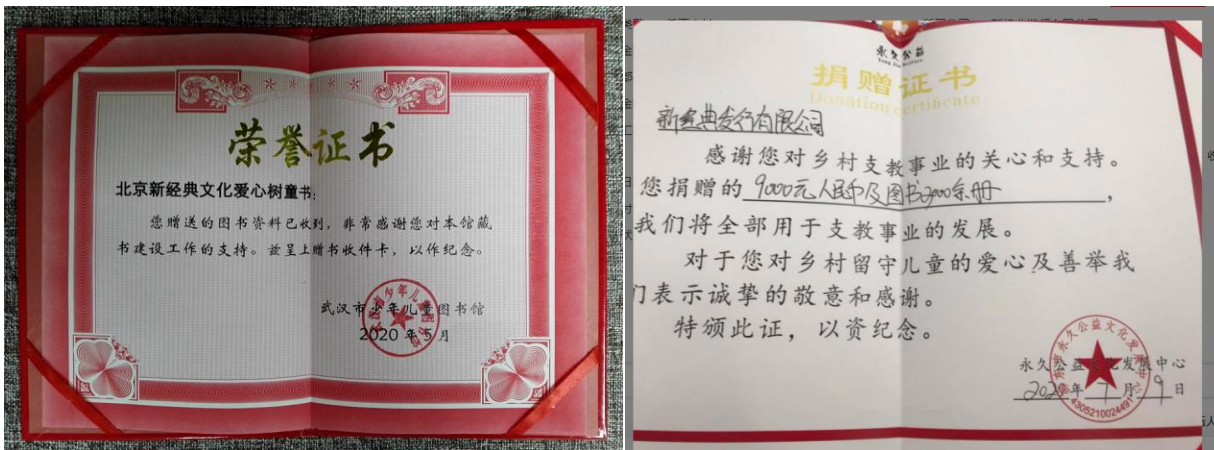 荣誉证书
北京新经典文化爱心树童书:
您赠送的图书资料已收到，非常感谢您对本馆藏
书建设工作的支持。兹呈上赠书收件卡，以作纪念。
武汉市少年儿童图书馆
2020年5月
永久公益
捐赠证书
Donation certificate
新经典发行有限公司
感谢您对乡村支教事业的关心和支持。
您捐赠的 9000元人民币及图书2000余册，
我们将全部用于支教事业的发展。
对于您对乡村留守儿童的爱心及善举我
们表示诚挚的敬意和感谢。
特颁此证，以资纪念。
永久公益文化发展中心
2020年7月9日
4305210024491